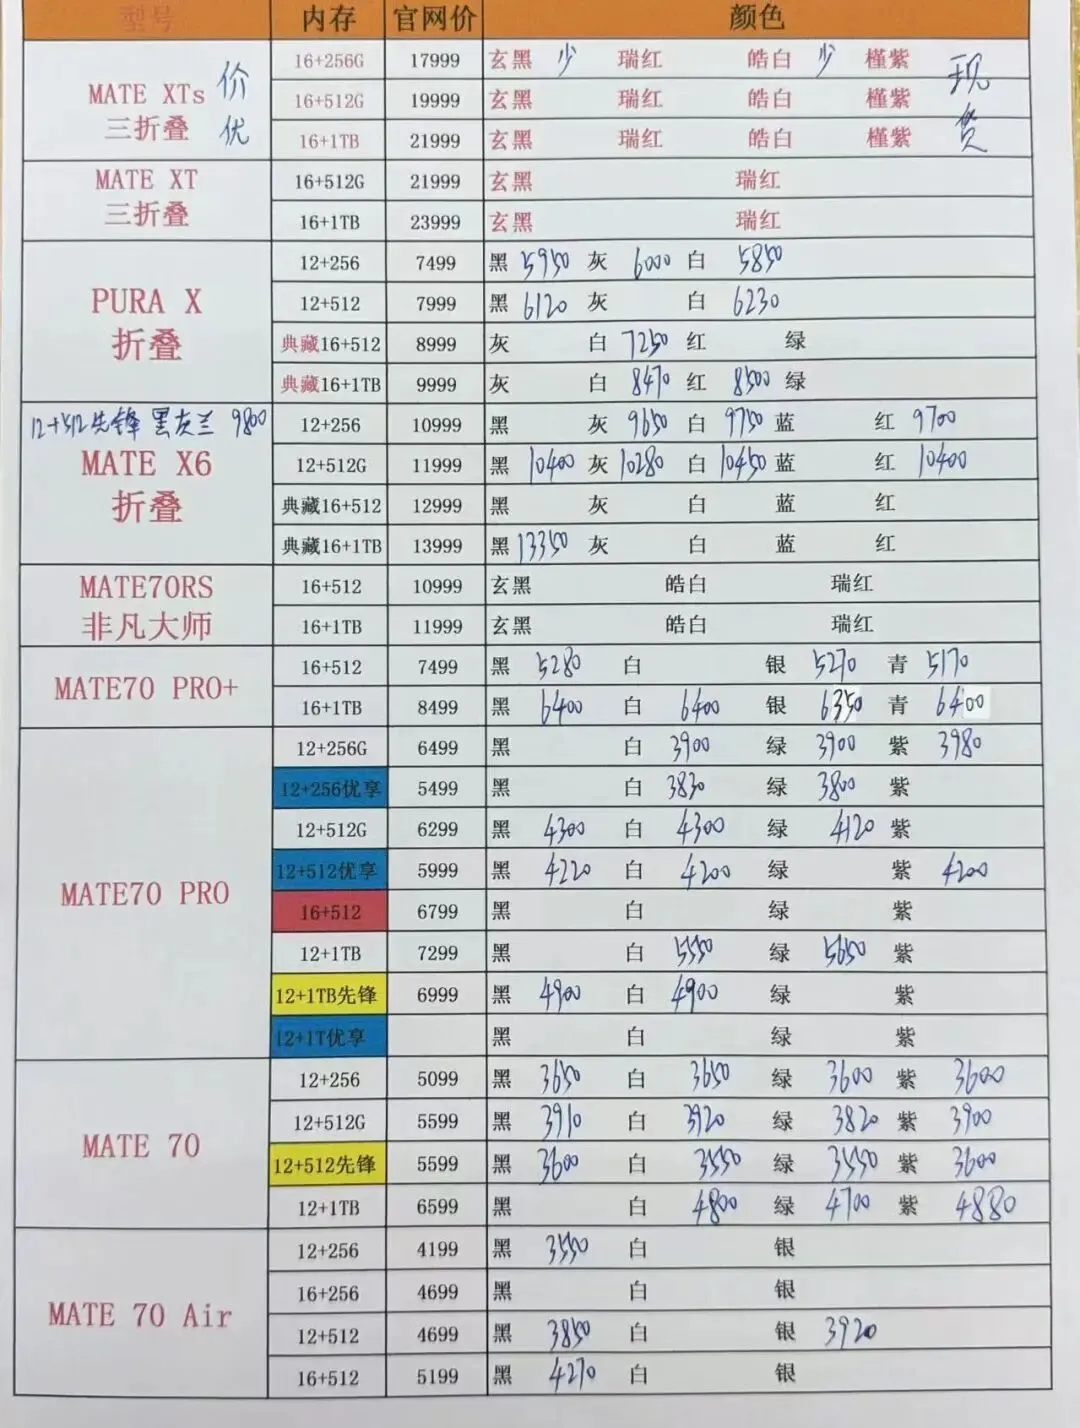 型号 内存 官网价 颜色
MATE XTs 三折叠 价优 16+256G 17999 玄黑 少 瑞红 皓白 少 槿紫 现货
16+512G 19999 玄黑 瑞红 皓白 槿紫
16+1TB 21999 玄黑 瑞红 皓白 槿紫
MATE XT 三折叠 16+512G 21999 玄黑 瑞红
16+1TB 23999 玄黑 瑞红
PURA X 折叠 12+256 7499 黑 5950 灰 6000 白 5850
12+512 7999 黑 6120 灰 白 6230
典藏16+512 8999 灰 白 7250 红 绿
典藏16+1TB 9999 灰 白 8470 红 8500 绿
12+512先锋 黑灰兰 9800
MATE X6 折叠 12+256 10999 黑 灰 9650 白 9750 蓝 红 9700
12+512G 11999 黑 10400 灰 10280 白 10450 蓝 红 10400
典藏16+512 12999 黑 灰 白 蓝 红
典藏16+1TB 13999 黑 13350 灰 白 蓝 红
MATE70RS 非凡大师 16+512 10999 玄黑 皓白 瑞红
16+1TB 11999 玄黑 皓白 瑞红
MATE70 PRO+ 16+512 7499 黑 5280 白 银 5270 青 5170
16+1TB 8499 黑 6400 白 6400 银 6350 青 6400
MATE70 PRO 12+256G 6499 黑 白 3900 绿 3900 紫 3980
12+256优享 5499 黑 白 3830 绿 3800 紫
12+512G 6299 黑 4300 白 4300 绿 4120 紫
12+512优享 5999 黑 4220 白 4200 绿 紫 4200
16+512 6799 黑 白 绿 紫
12+1TB 7299 黑 白 5550 绿 5650 紫
12+1TB先锋 6999 黑 4900 白 4900 绿 紫
12+1T优享 黑 白 绿 紫
MATE 70 12+256 5099 黑 3650 白 3650 绿 3600 紫 3600
12+512G 5599 黑 3910 白 3920 绿 3820 紫 3900
12+512先锋 5599 黑 3600 白 3550 绿 3550 紫 3600
12+1TB 6599 黑 白 4800 绿 4700 紫 4880
MATE 70 Air 12+256 4199 黑 3550 白 银
16+256 4699 黑 白 银
12+512 4699 黑 3850 白 银 3920
16+512 5199 黑 4270 白 银